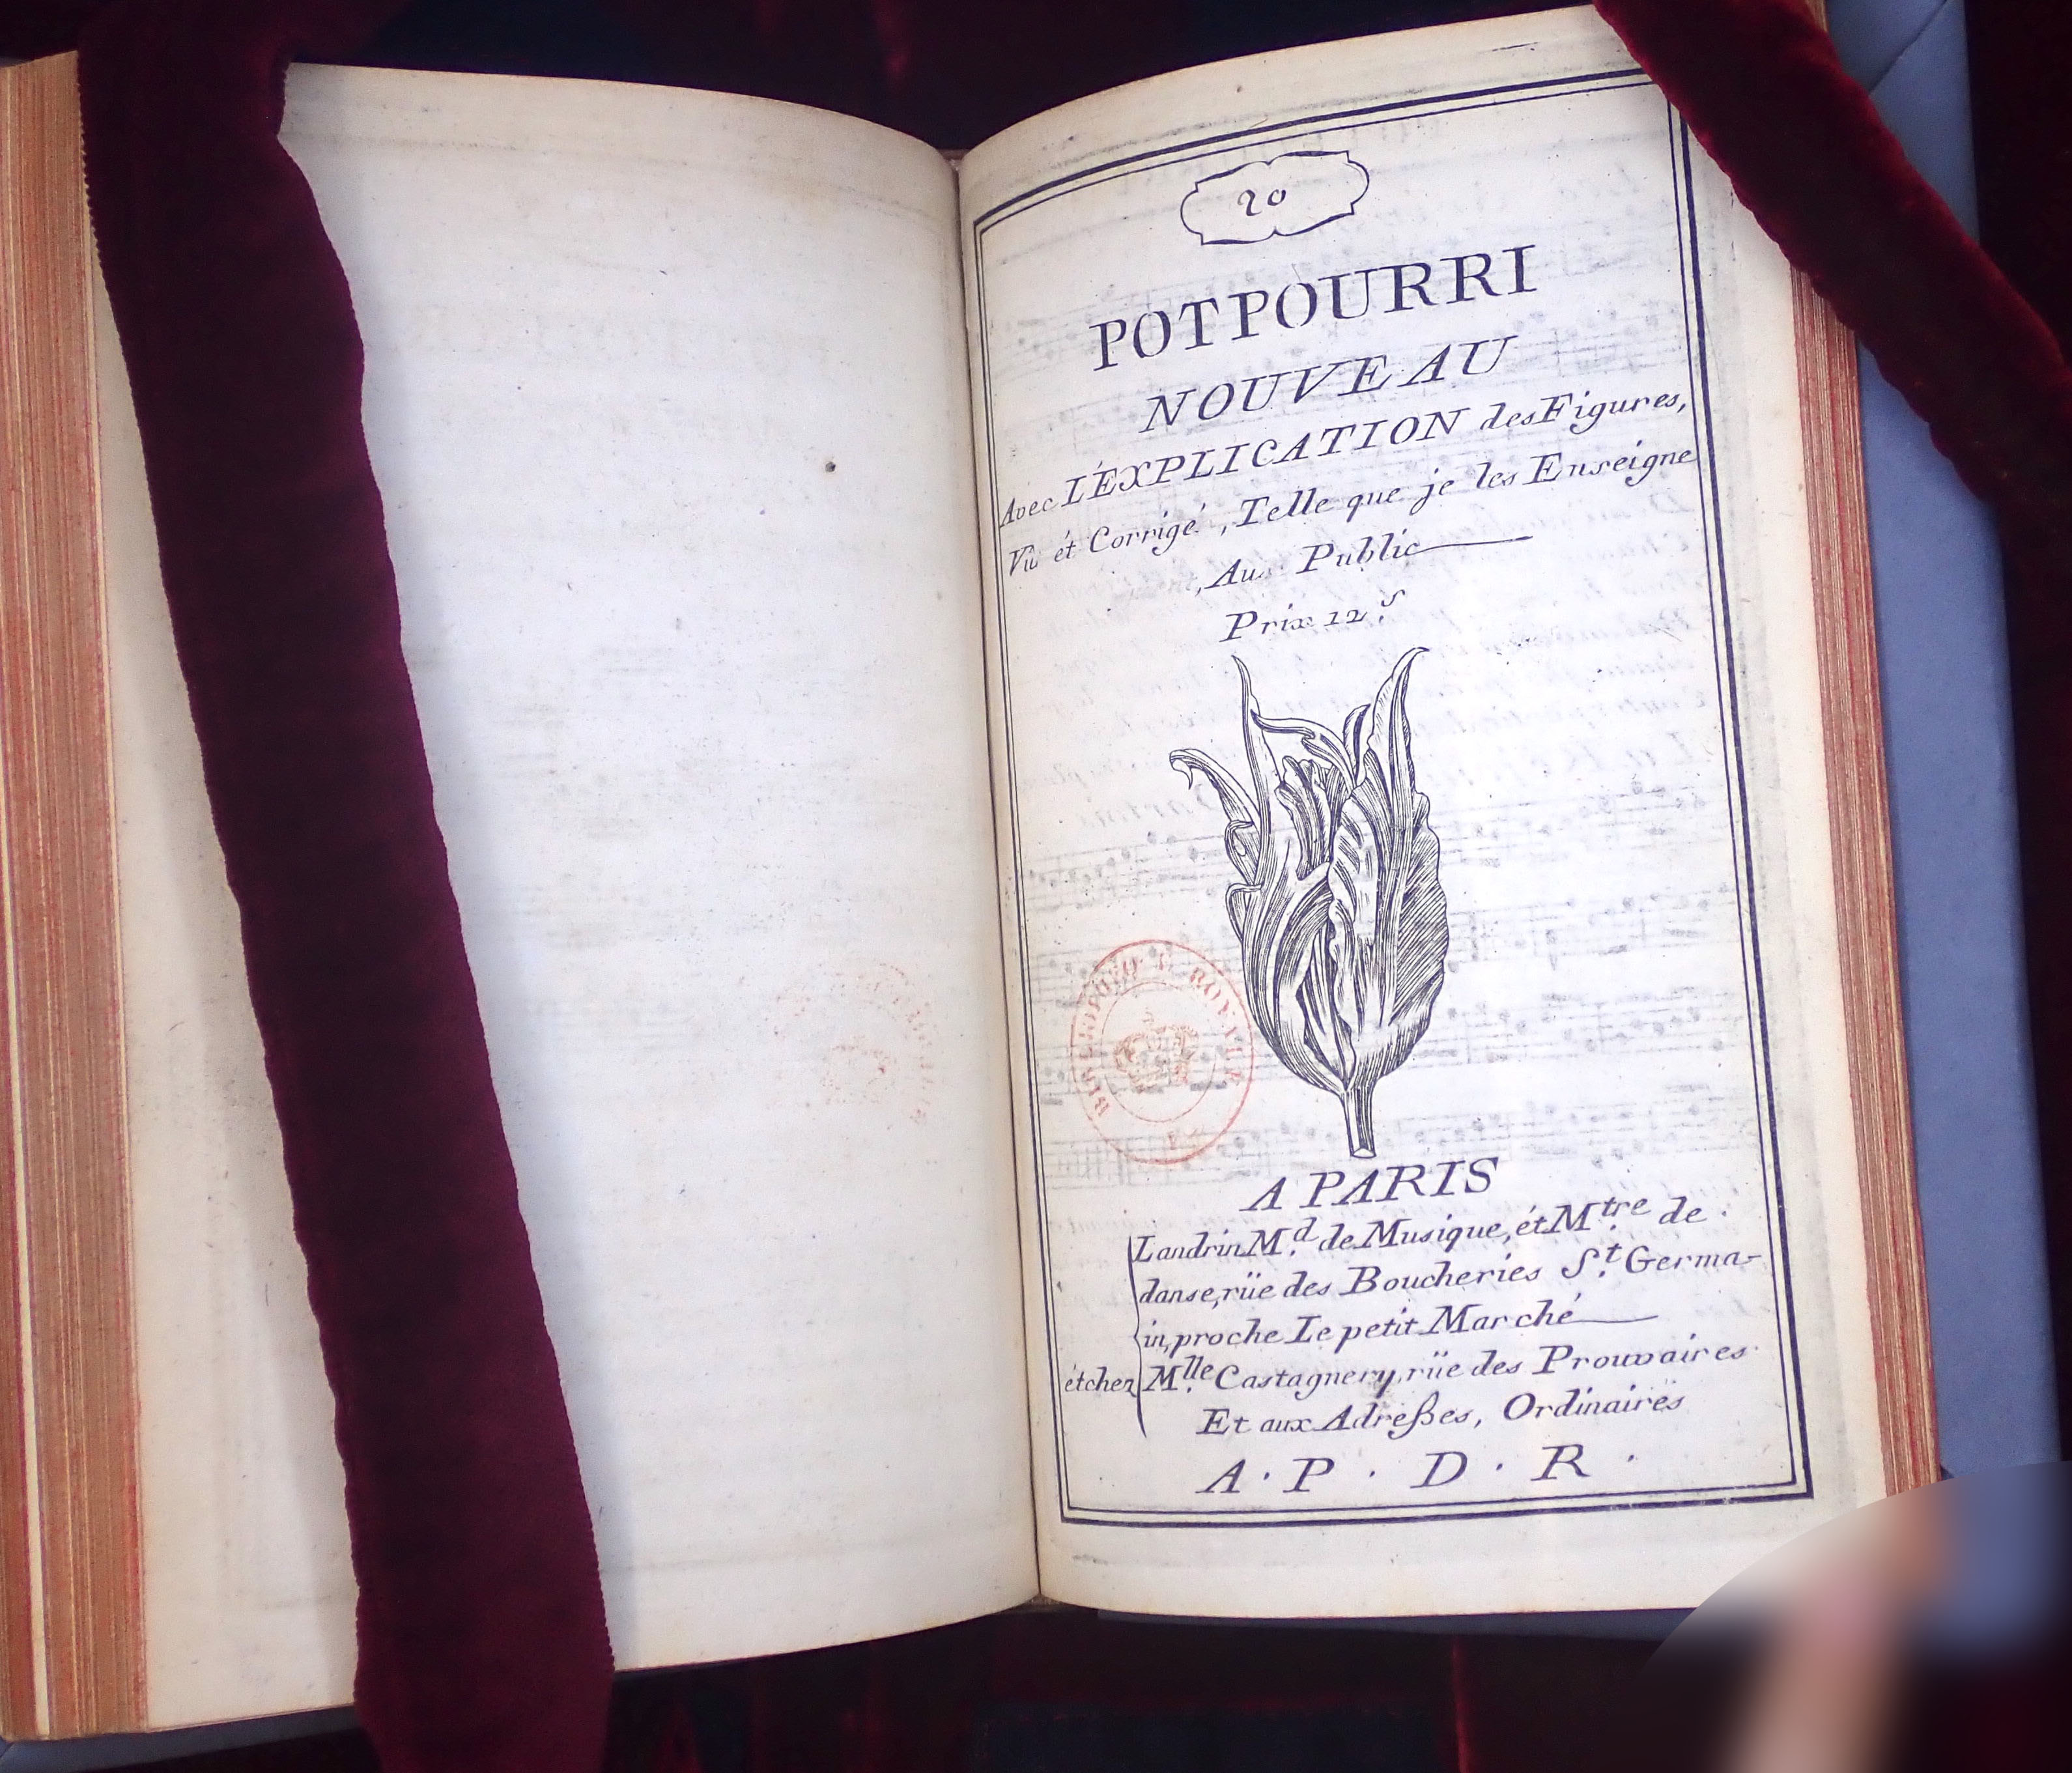 20
POTPOURRI
NOUVEAU
Avec L'EXPLICATION des Figures,
Vû ét Corrigé, Telle que je les Enseigne
Au Public
Prix 12.s
BIBLIOTHEQUE ROYALE
A PARIS
Landrin M.d de Musique, ét M.tre de
danse, rüe des Boucheries S.t Germa-
in, proche Le petit Marché
ét chez M.lle Castagnery, rüe des Prouvaires
Et aux Adreßes, Ordinaires
A. P. D. R.